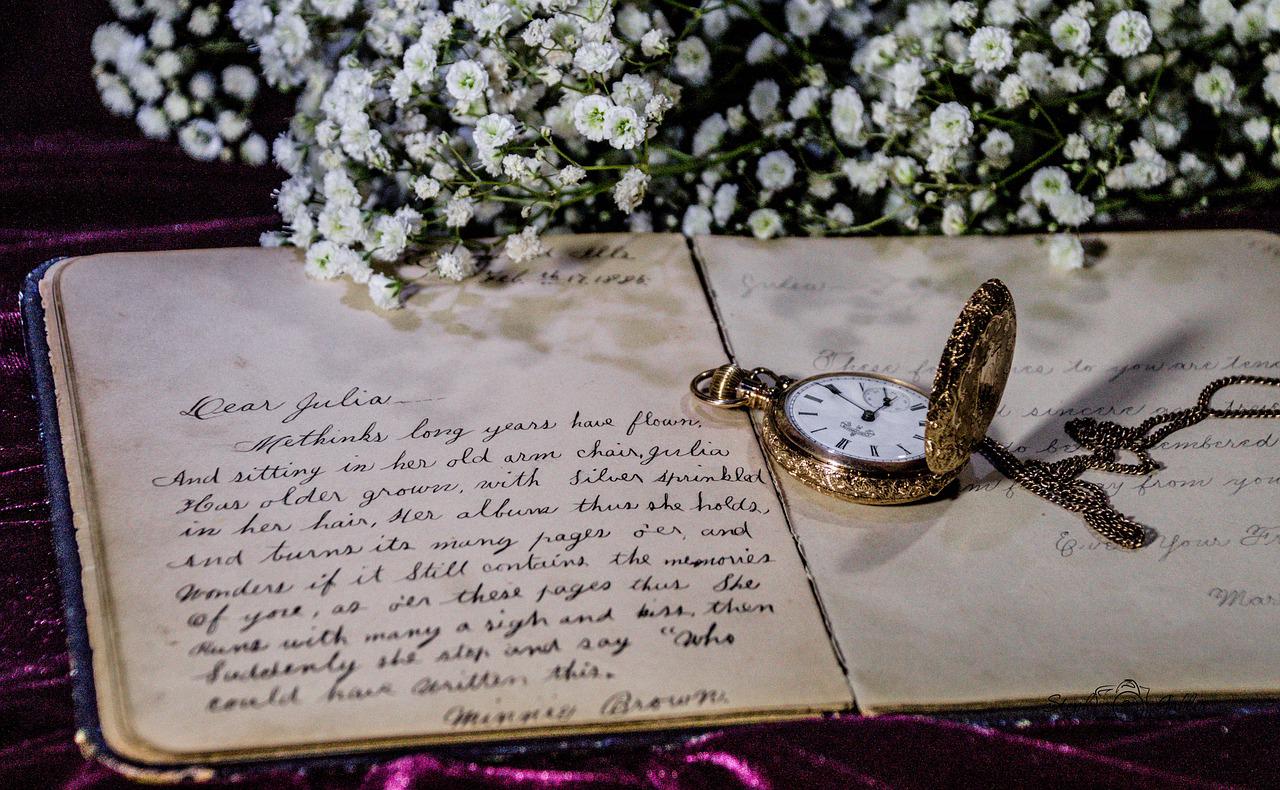 Ills
Feb. 17. 1886.
Dear Julia
Methinks long years have flown,
And sitting in her old arm chair, Julia
Has older grown, with Silver sprinkled
in her hair, Her album thus she holds,
And turns its many pages o'er, and
Wonders if it still contains the memories
Of yore, as o'er these pages thus She
Runs with many a sigh and kiss, then
Suddenly she stop and say "Who
could have written this.
Minnie Brown.
Julia
to you are
sincere
to be
from you
Ever Your